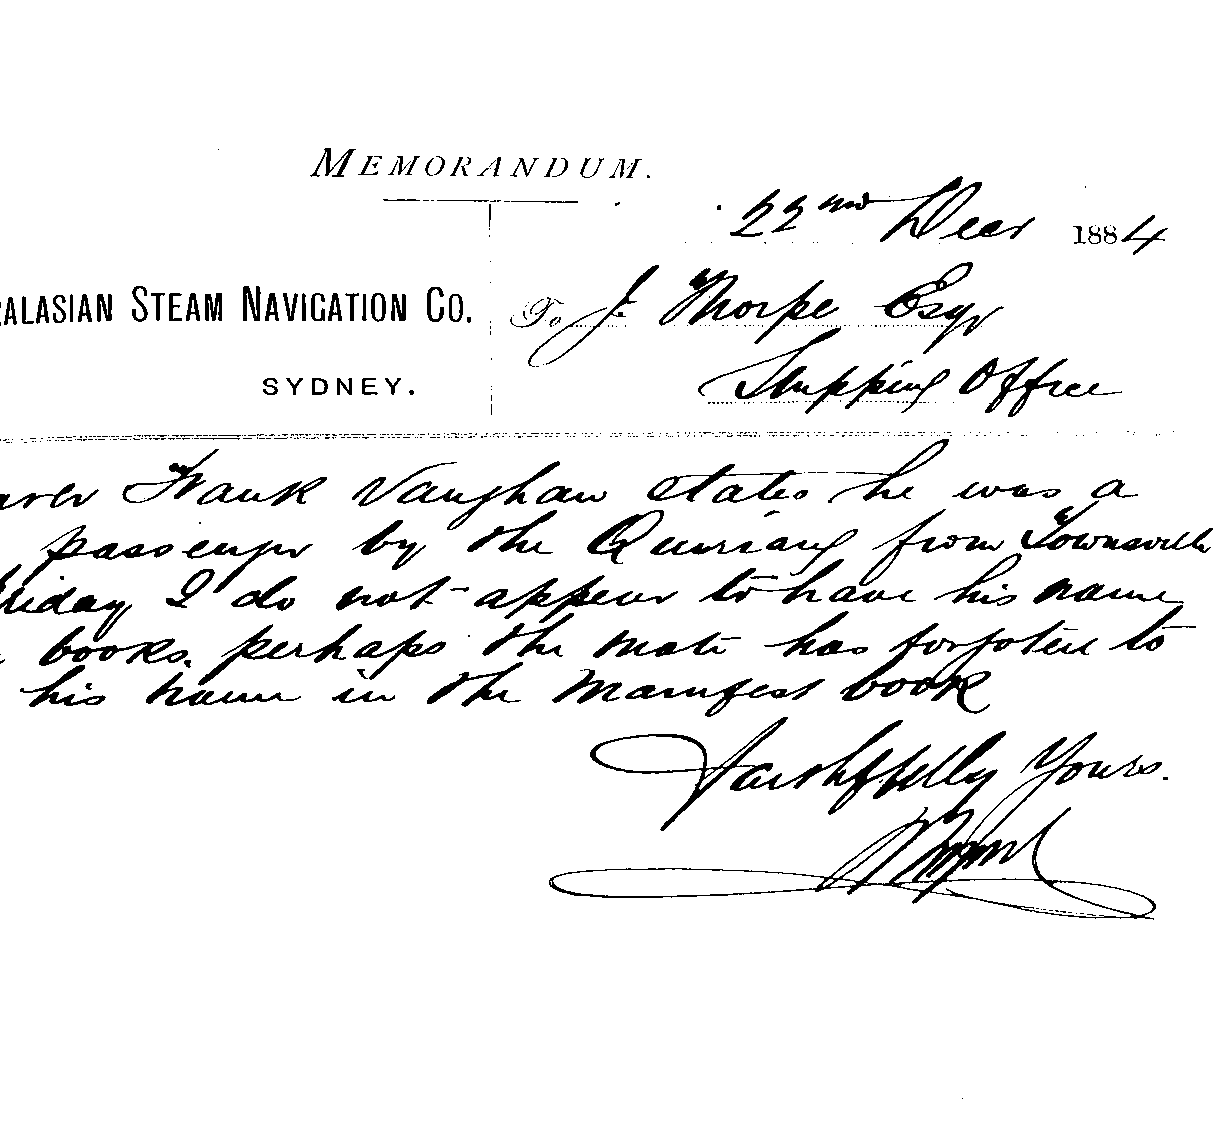 MEMORANDUM.
22nd Decr 1884
ALASIAN STEAM NAVIGATION CO.
To J. Thorpe Esqr
SYDNEY.
Shipping Office
Frank Vaughan states he was a
passenger by the Quiraing from Townsville
Friday I do not appear to have his name
books. perhaps the mate has forgotten to
his name in the Manifest book
Faithfully Yours.